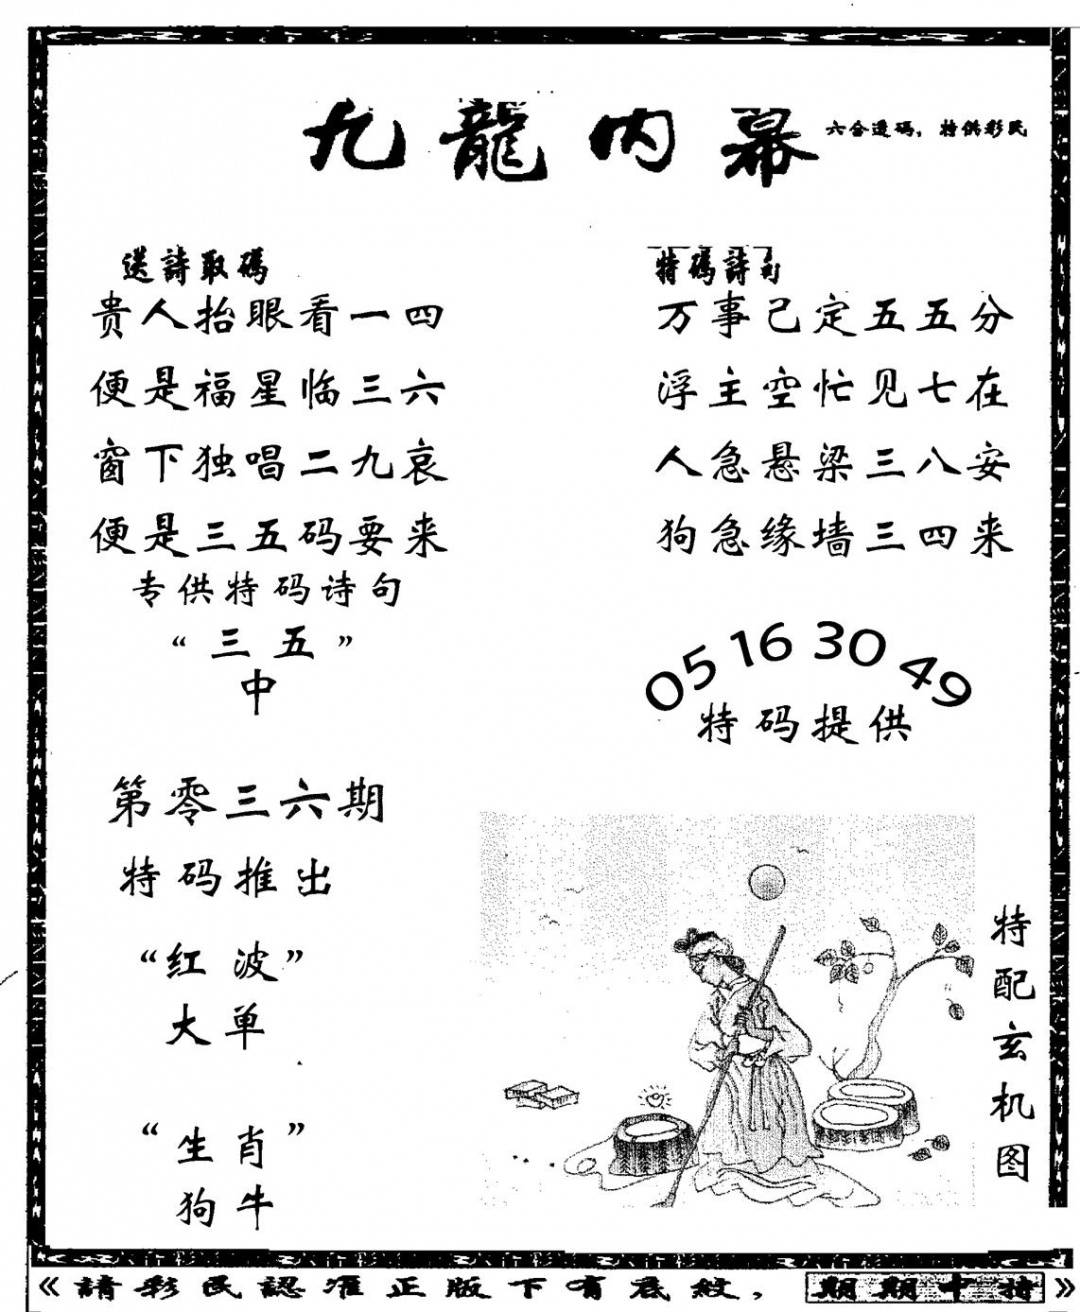 九龍内幕
六合透碼，特供彩民
送詩取碼
贵人抬眼看一四
便是福星临三六
窗下独唱二九哀
便是三五码要来
专供特码诗句
“三五”
中
特碼詩句
万事己定五五分
浮主空忙见七在
人急悬梁三八安
狗急缘墙三四来
05 16 30 49
特码提供
第零三六期
特码推出
“红波”
大单
“生肖”
狗牛
特配玄机图
《請彩民認准正版下有底紋，期期中特》